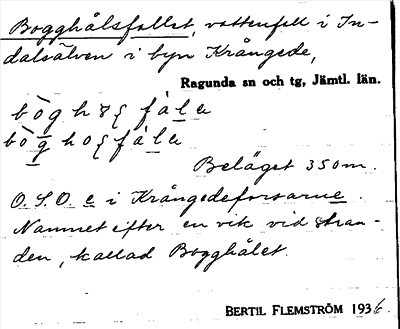 Bogghålsfallet, vattenfall i In-
dalsälven i byn Krångede,
Ragunda sn och tg, Jämtl. län.
Beläget 350m.
O.S.O. e i Krångedeforsarne.
Namnet efter en vik vid stran-
den, kallad Bogghålet.
BERTIL FLEMSTRÖM 1936.